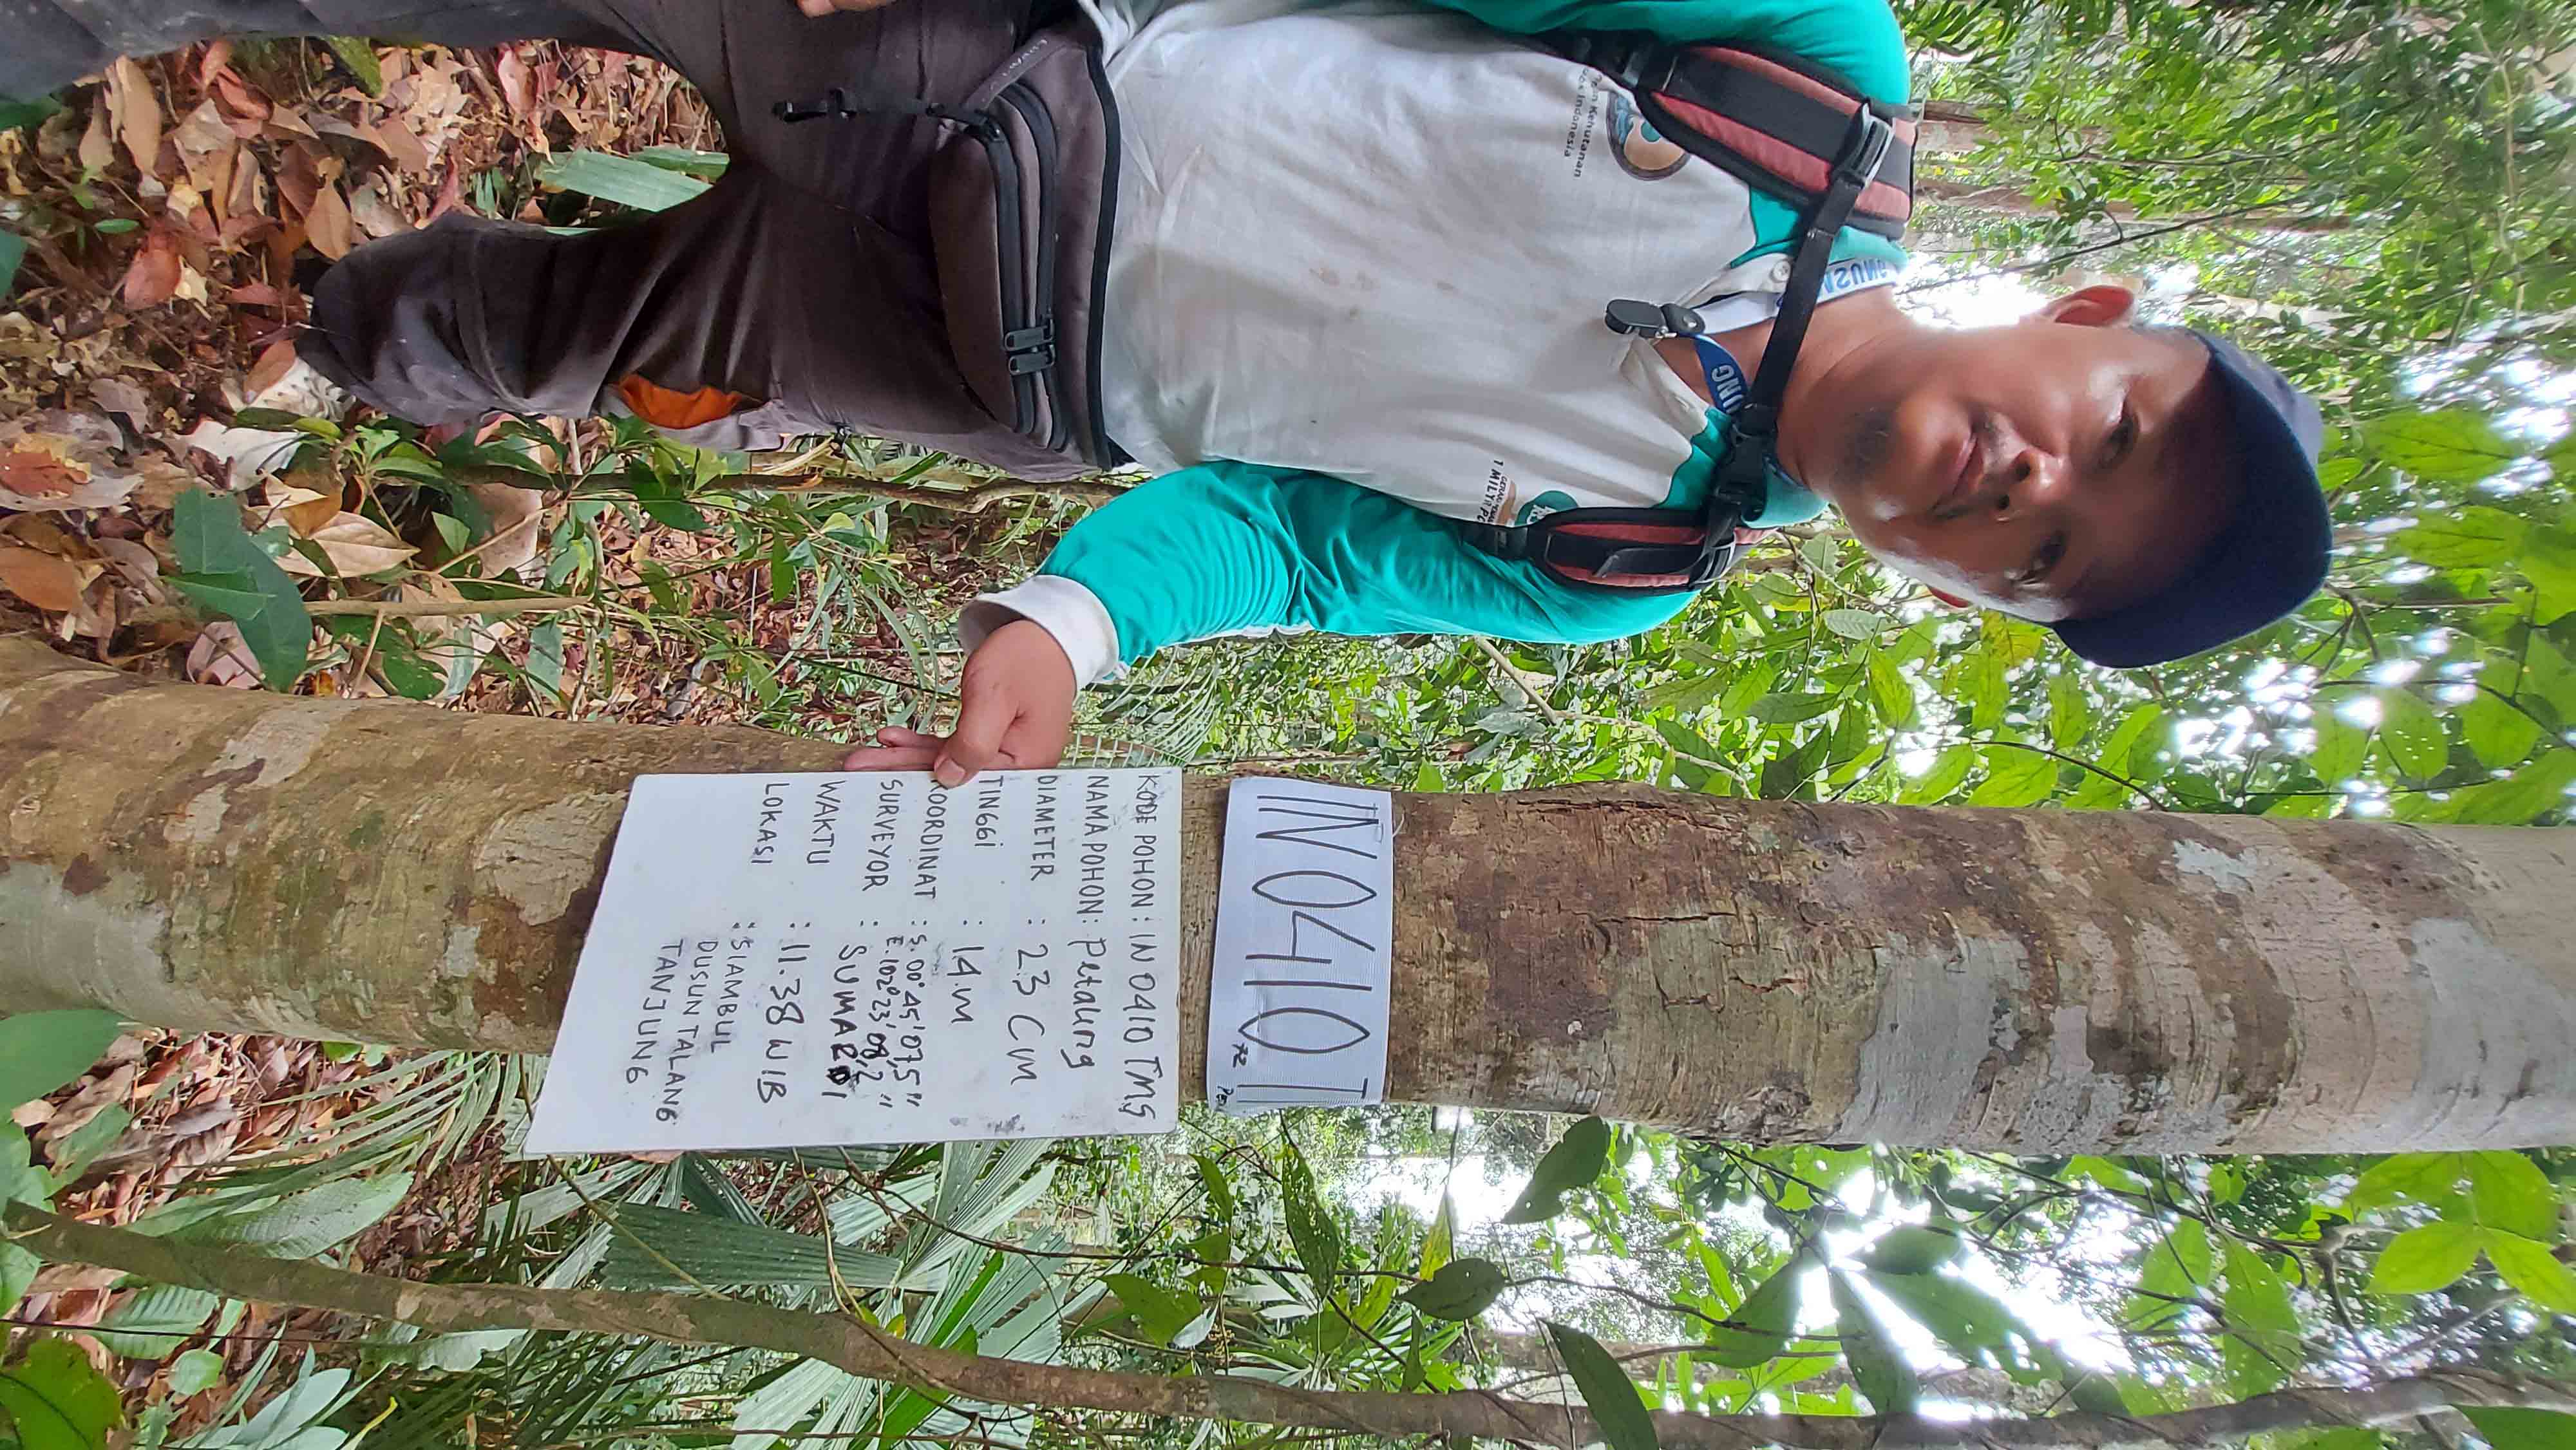 UNG
Kehutanan
Indonesia
1 MILY
IN 0410 T
72
KODE POHON : IN 0410 TMS
NAMA POHON : Petaling
DIAMETER : 23 Cm
TINGGI : 14 m
KOORDINAT : S. 00° 45' 07,5"
E. 102° 23' 08,2"
SURVEYOR : SUMARDI
WAKTU : 11.38 WIB
LOKASI : SIAMBUL
DUSUN TALANG
TANJUNG